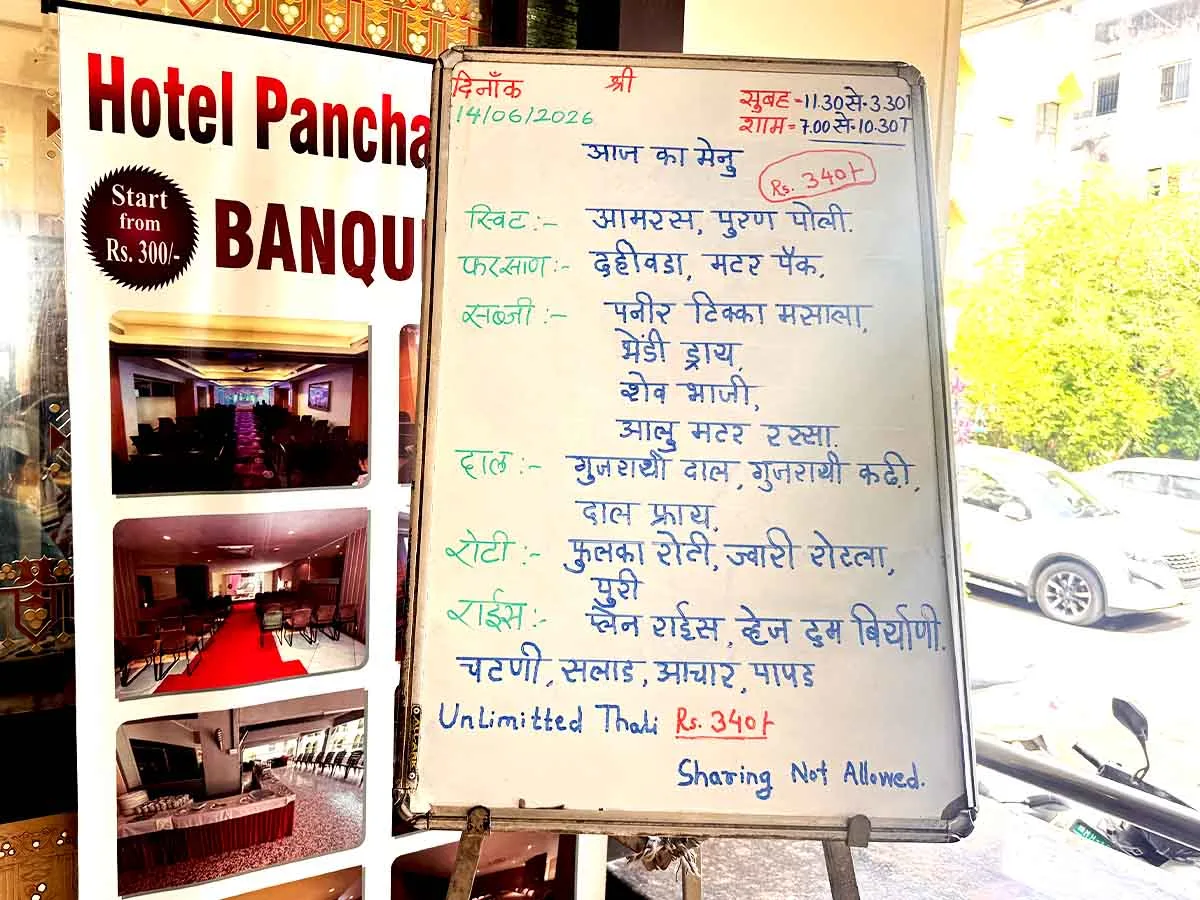 Hotel Pancha
Start
from
Rs. 300/-
BANQU
दिनाँक
श्री
14/06/2026
सुबह -11.30 से-3.30T
शाम = 7.00 से-10.30T
आज का मेनु
Rs. 340/-
स्विट :- आमरस, पुरण पोली.
फरसाण :- दहीवडा, मटर पॅक,
सब्जी :- पनीर टिक्का मसाला,
भेंडी ड्राय,
शेव भाजी,
आलु मटर रस्सा.
दाल :- गुजराथी दाल, गुजराथी कढी,
दाल फ्राय,
रोटी :- फुलका रोटी, ज्वारी रोटला,
पुरी
राईस :- प्लैन राईस, व्हेज दुम बिर्याणी.
चटणी, सलाड, आचार, पापड
UnLimitted Thali Rs. 340/-
Sharing Not Allowed.